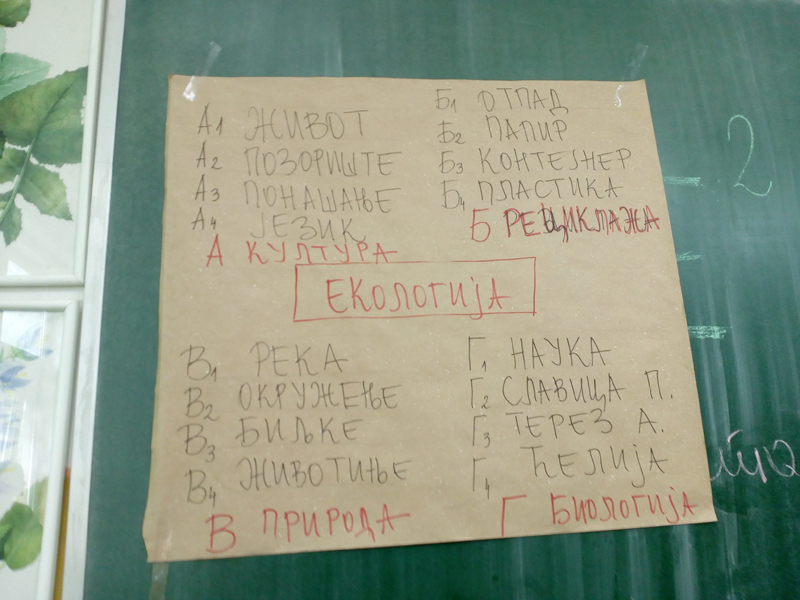 А1 ЖИВОТ
А2 ПОЗОРИШТЕ
А3 ПОНАШАЊЕ
А4 ЈЕЗИК
А КУЛТУРА
Б1 ОТПАД
Б2 ПАПИР
Б3 КОНТЕЈНЕР
Б4 ПЛАСТИКА
Б РЕЦИКЛАЖА
ЕКОЛОГИЈА
В1 РЕКА
В2 ОКРУЖЕЊЕ
В3 БИЉКЕ
В4 ЖИВОТИЊЕ
В ПРИРОДА
Г1 НАУКА
Г2 СЛАВИЦА П.
Г3 ТЕРЕЗ А.
Г4 ЋЕЛИЈА
Г БИОЛОГИЈА
2